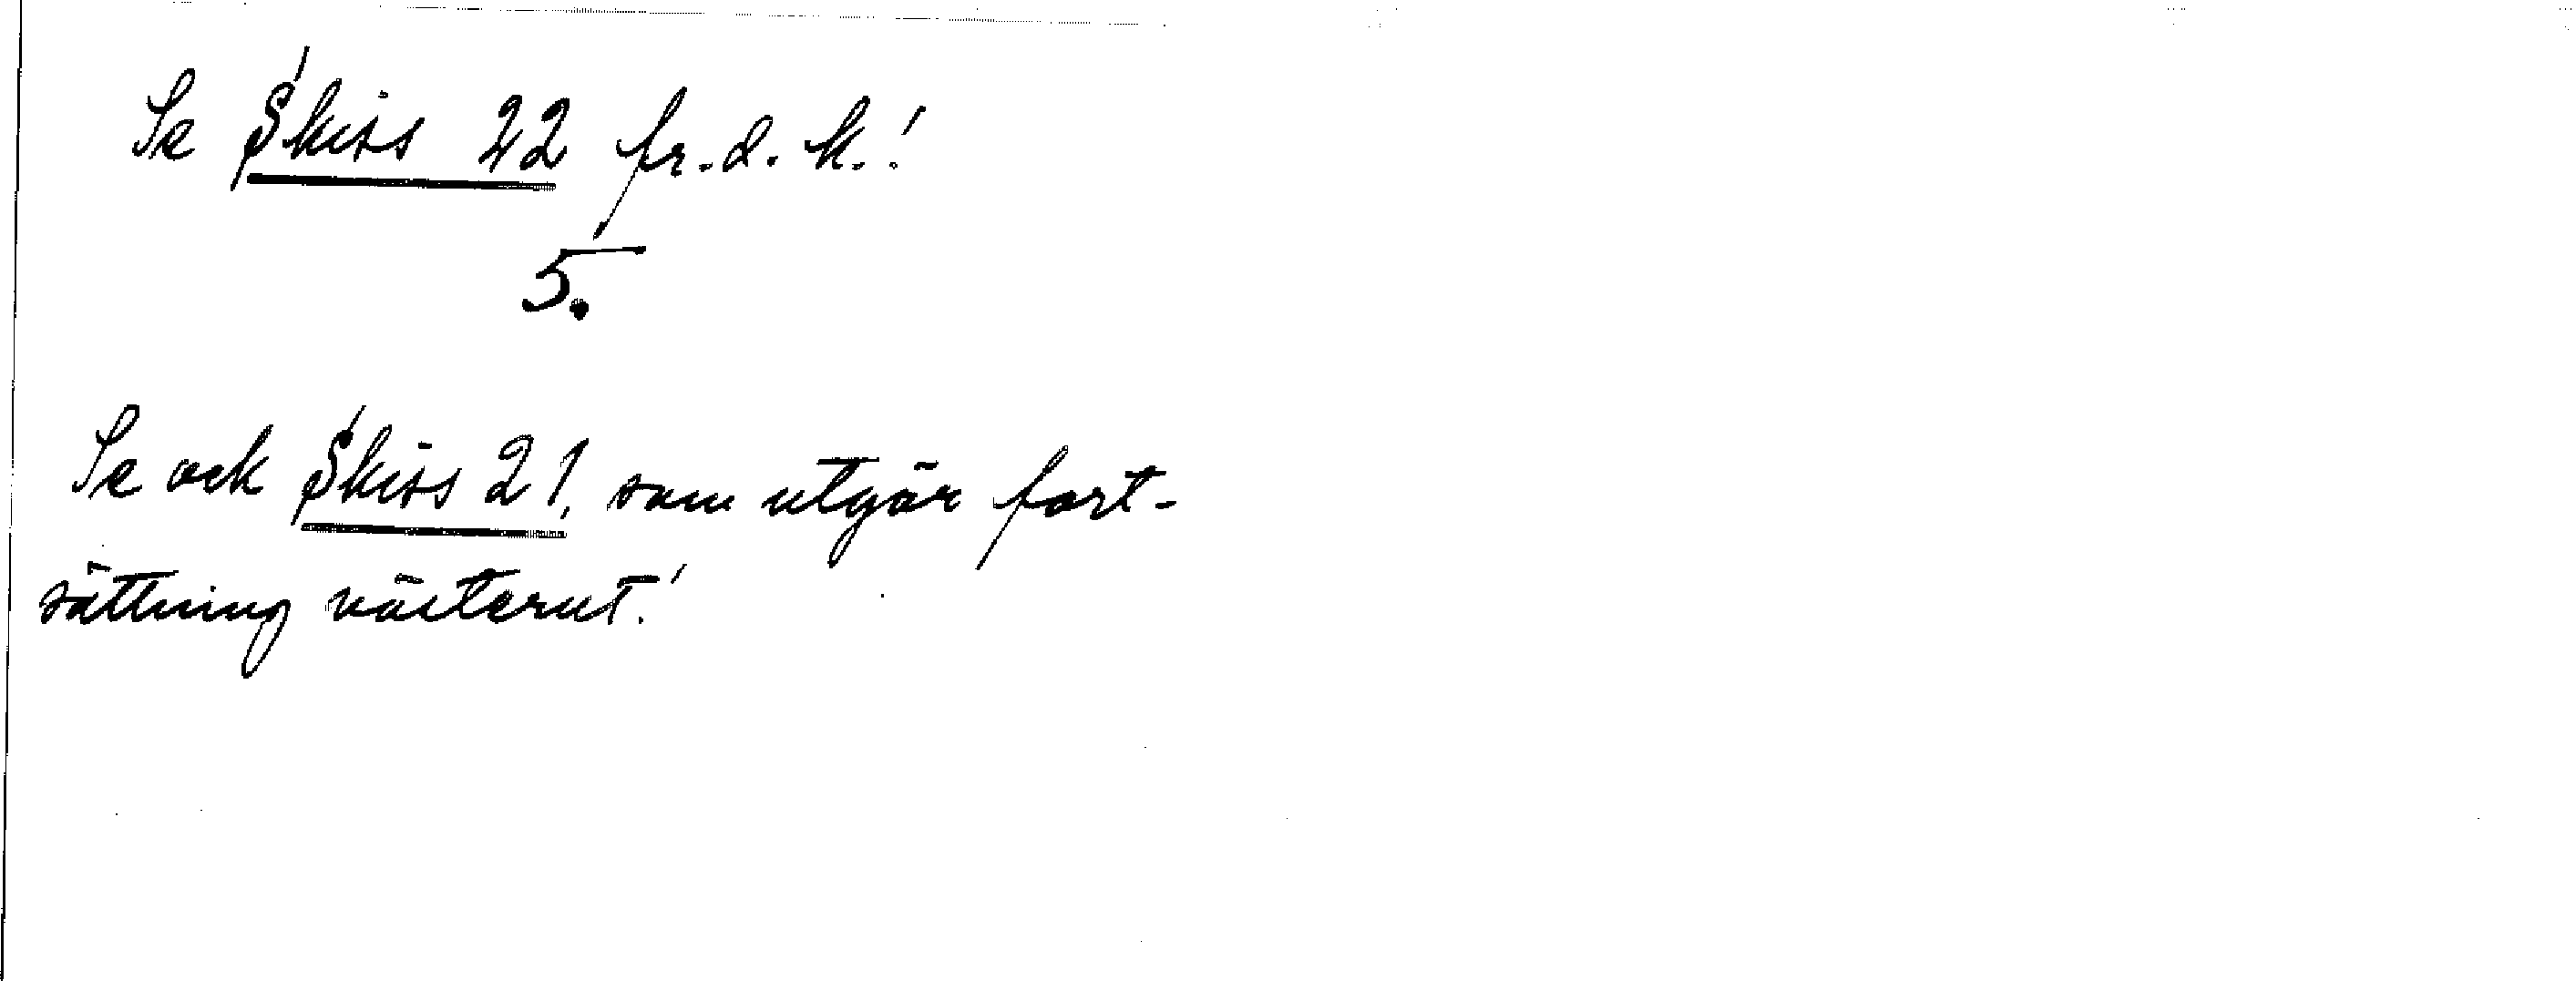 Se Skiss 22 fr. d. k.!
5.
Se ock Skiss 21, som utgör fort-
sättning västerut!